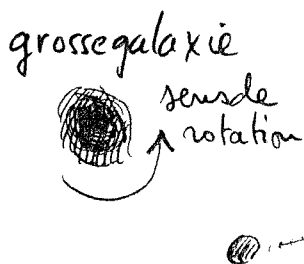 grosse galaxie
sens de
rotation